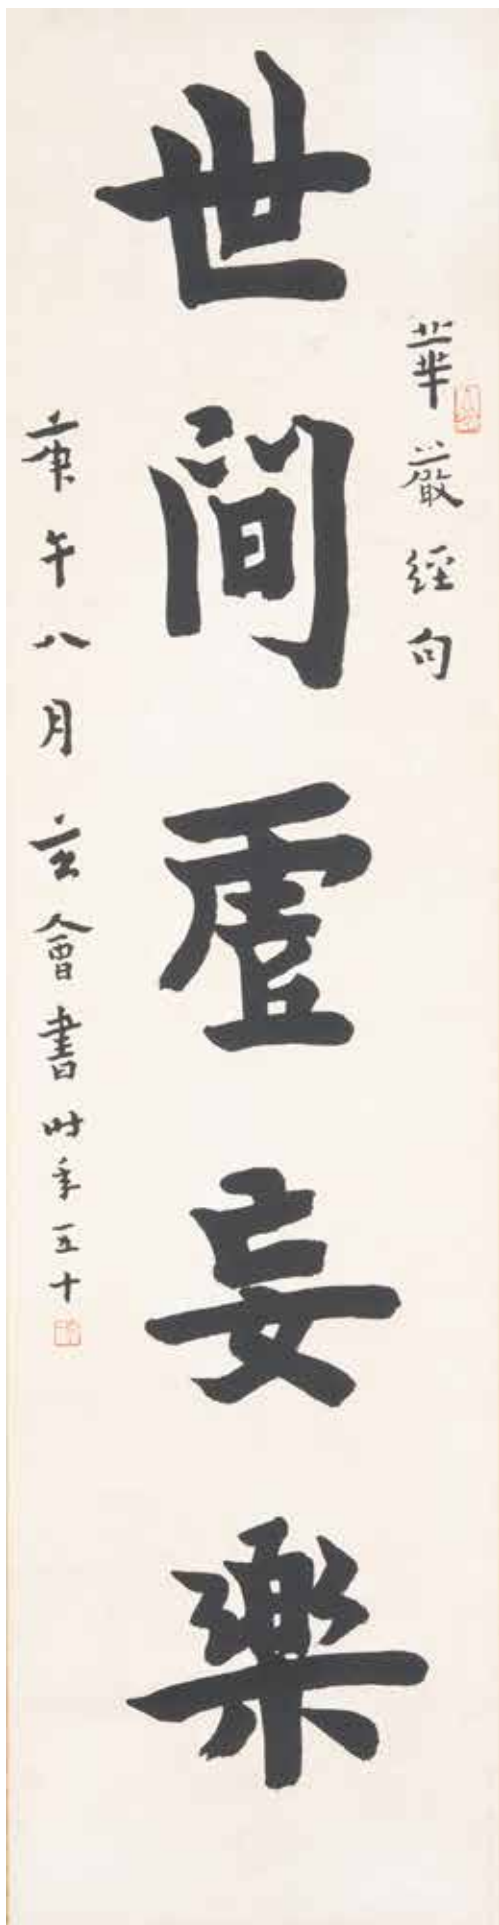 華嚴經句
世間虛妄樂
庚午八月玄會書时年五十